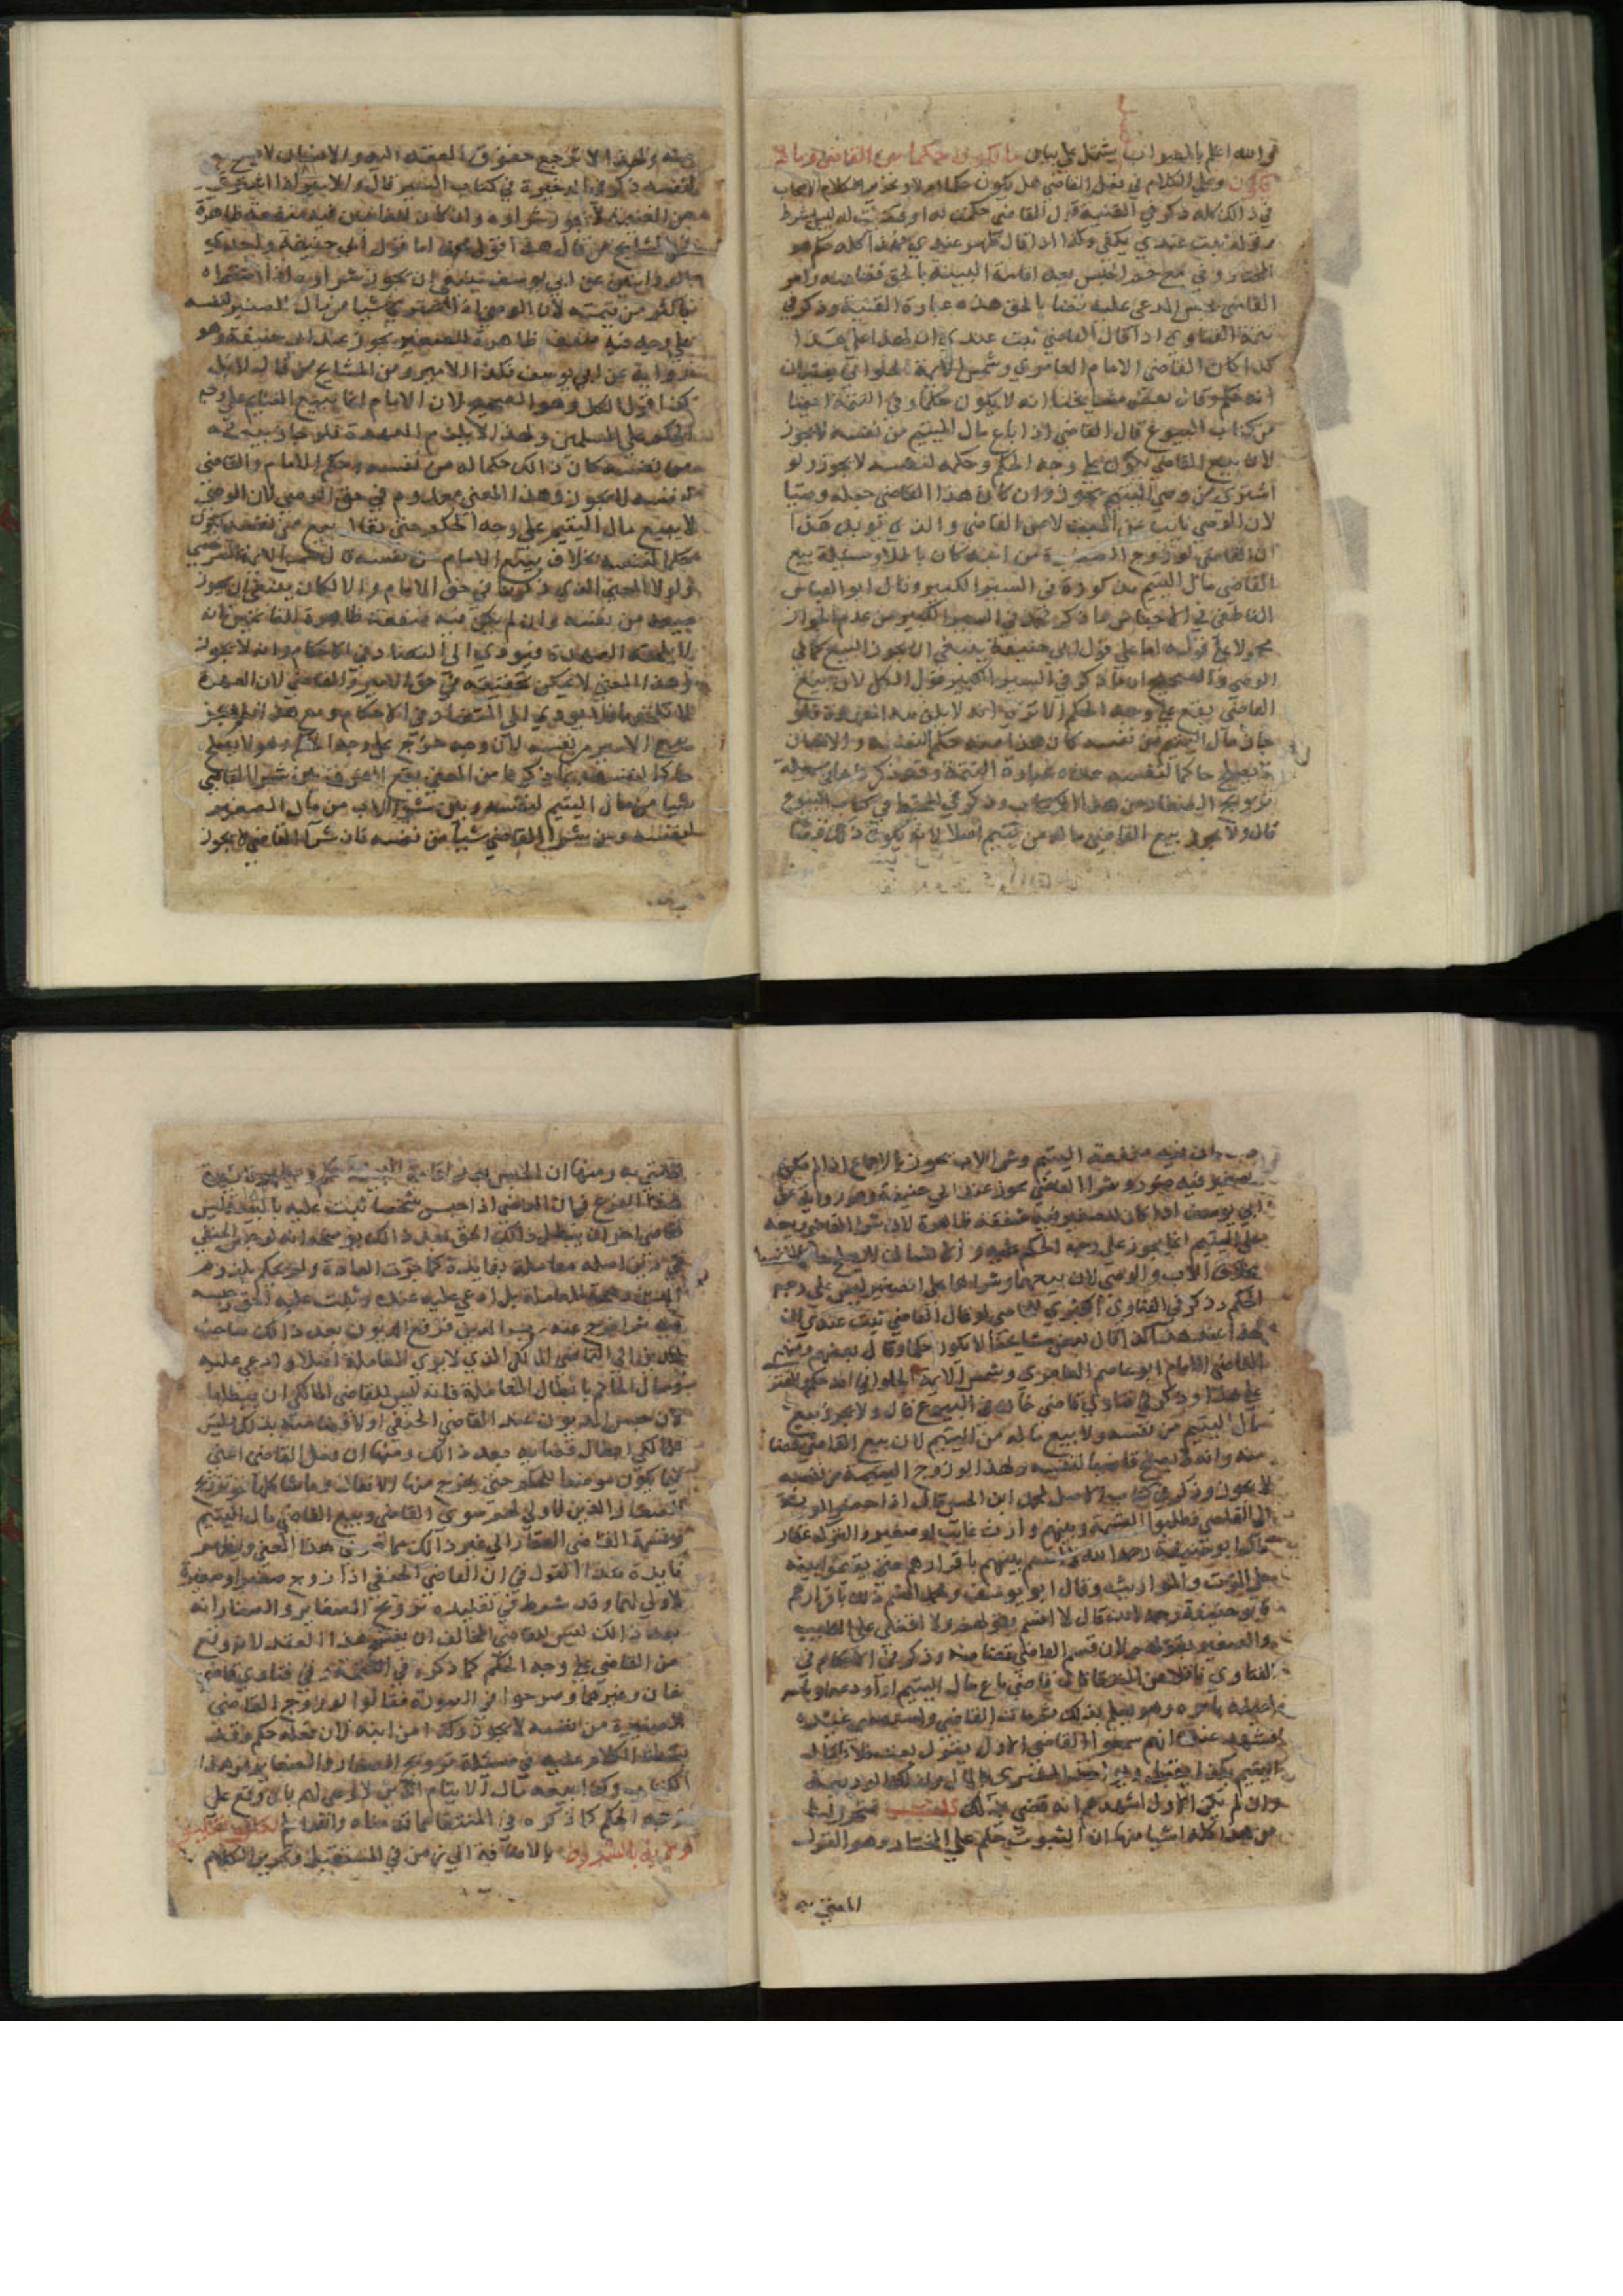 والله اعلم بالصواب يشتمل على بيان ما يكون حكما من القاضي وما لا
يكون وعلى الكلام في فعل القاضي هل يكون حكما ام لا وتحرير الكلام
في ذلك كله ذكر في القنية قول القاضي حكمت له او قضيت له ليس بشرط
وقوله ثبت عندي يكفي وكذا اذا قال ظهر عندي فهذا كله حكم هو
المختار وفي الحبس بعد اقامة البينة بالحق قضا منه وامر
القاضي بحبس المدعى عليه قضا بالحق هذه عبارة القنية وذكر في
تتمة الفتاوي اذا قال القاضي ثبت عندي ان لهذا على هذا
كذا كان القاضي الامام العامري وشمس الايمة الحلواني يفتيان
انه حكم وقال بعض مشايخنا انه لا يكون حكما وفي التتمة ايضا
من كتاب البيوع قال القاضي اذا باع مال اليتيم من نفسه لا يجوز
لان بيع القاضي يكون على وجه الحكم وحكمه لنفسه لا يجوز ولو
اشترى من وصي اليتيم يجوز وان كان هذا القاضي جعله وصيا
لان الوصي نايب عن الميت لا عن القاضي والذي يؤيد هذا
ان القاضي لو زوج الصغيرة من ابنه كان باطلا ومسئلة بيع
القاضي مال اليتيم مذكورة في السير الكبير وقال ابو العباس
الناطفي في الاجناس ما ذكر محمد في السير الكبير من عدم الجواز
محمولا على قوله اما على قول ابي حنيفة ينبغي ان يجوز البيع كما في
الوصي والصحيح ان ما ذكر في السير الكبير قول الكل لان بيع
القاضي يقع على وجه الحكم الا ترى انه لا يلزمه العهدة فلو
جاز مال اليتيم من نفسه كان هذا منه حكم لنفسه والانسان
لا يصلح حاكما لنفسه هذه عبارة التتمة وقد ذكر
تزويج الصغار من هذا الكتاب وذكر في المحيط في كتاب البيوع
قال ولا يجوز بيع القاضي ماله من يتيم اصلا لانه يكون ذلك قضا
ولهذا لا ترجع حقوق العقد اليه والانسان لا يصلح
لنفسه ذكر في الذخيرة في كتاب السير قال والامير اذا اشترى
من الغنيمة لا يجوز شراؤه وان كان للغانمين فيه منفعة ظاهرة
من المشايخ من قال هذا قول محمد اما قول ابي حنيفة واحدى
الروايتين عن ابي يوسف ينبغي ان يجوز شراؤه اذا اشتراه
باكثر من قيمته لان الوصي اذا اشترى شيا من مال الصغير لنفسه
على وجه فيه منفعة ظاهرة للصغير يجوز عند ابي حنيفة وهو
رواية عن ابي يوسف فكذا الامير ومن المشايخ من قال لا بل
هذا قول الكل وهو الصحيح لان الامام انما يبيع الغنايم على وجه
الحكم على المسلمين ولهذا لا يلزم العهدة فلو جاز بيعه
من نفسه كان ذلك حكما له من نفسه وحكم الامام والقاضي
لنفسه لا يجوز وهذا المعنى معدوم في حق الوصي لان الوصي
لا يبيع مال اليتيم على وجه الحكم حتى يقال بيع من نفسه يكون
حكما لنفسه بخلاف بيع الامام من نفسه قال شمس الايمة السرخسي
ولولا المعنى الذي ذكرنا في حق الامام والا لكان ينبغي ان يجوز
بيعه من نفسه وان لم يكن فيه منفعة ظاهرة للغانمين لانه
لا يلحقه العهدة فيؤدي الى التضاد في الاحكام وانه لا يجوز
وهذا المعنى لا يمكن تحقيقه في حق الامير والقاضي لان العهدة
لا تلحقهما فلا يؤدي الى التضاد في الاحكام ومع هذا لم يجز
بيع الامير من نفسه لان وجه خرج على وجه الحكم وهو لا يصلح
حاكما لنفسه وبما ذكرنا من المعنى يقع الفرق بين شرا القاضي
شيا من مال اليتيم لنفسه وبين شرا الاب من مال الصغير
لنفسه وبين شرا القاضي شيا من نفسه فان شرا القاضي لا يجوز
وان فيه منفعة اليتيم وشرا الاب يجوز بالاجماع اذا لم يكن
للصغير فيه ضرر وشرا الوصي يجوز عند ابي حنيفة وهو رواية عن
ابي يوسف اذا كان للصغير فيه منفعة ظاهرة لان شرا القاضي بيعه
على اليتيم انما يجوز على وجه الحكم عليه
بخلاف الاب والوصي لان بيعهما وشراهما على الصغير ليس على وجه
الحكم وذكر في الفتاوى الكبرى للخاصي لو قال القاضي ثبت عندي ان
لهذا على هذا كذا قال بعض مشايخنا لا يكون حكما وقال بعضهم ومنهم
القاضي الامام ابو عاصم العامري وشمس الايمة الحلواني انه حكم والفتوى
على هذا وذكر في فتاوي قاضي خان في البيوع قال ولا يجوز بيع
مال اليتيم من نفسه ولا بيع ماله من اليتيم لان بيع القاضي قضا
منه وانه لا يصلح قاضيا لنفسه ولهذا لو زوج اليتيمة من نفسه
لا يجوز وذكر في كتاب الاصل لمحمد ابن الحسن قال اذا حضر الورثة
الى القاضي فطلبوا القسمة وبينهم وارث غايب او صغير والتركة عقار
قال ابو حنيفة رحمه الله لا اقسم بينهم باقرارهم حتى يقيموا بينة
على الموت والمواريث وقال ابو يوسف ومحمد اقسم ذلك باقرارهم
وابو حنيفة رحمه الله قال لا اقسم بقولهم ولا اقضي على الغايب
والصغير بقولهم لان قسمة القاضي قضا منه وذكر في الاحكام في
الفتاوي ناقلا عن قال قاضي باع مال اليتيم او اودعه او باعه
امينه بامره وهو يعلم بذلك ثم مات القاضي واستقضى غيره
فشهد عنده انهم سمعوا القاضي الاول يقول بعت فلانا مال
اليتيم بكذا يقبل ويؤخذ المشتري بالمال وكذلك الوديعة
وان لم يكن الاول اشهدهم انه قضى بذلك تنبيه فتحرر لنا
من هذا كله اشيا منها ان الثبوت حكم على المختار وهو القول
المفتى به
المفتى به ومنها ان الحبس بعد اقامة البينة حكم ويظهر ثمرة
هذا الفرع فيما اذا القاضي اذا حبس شخصا ثبت عليه بالبينة فليس
لقاضي اخر ان يبطل ذلك الحق بعد ذلك يوضحه انه لو حبس الحنفي
في دين اصله معاملة بفايدة كما جرت العادة ولم يحكم بلزوم
الدين وصحة المعاملة بل ادعي عليه عنده وثبت عليه الحق وحبسه
فيه ثم اخرج عنه رب الدين فرفع المديون بعد ذلك صاحب
الدين الى القاضي المالكي الذي لا يرى المعاملة اصلا وادعي عليه
وسال الحاكم بابطال المعاملة فانه ليس للقاضي المالكي ان يبطلها
لان حبس المديون عند القاضي الحنفي اولا قضا منه بذلك فليس
للمالكي ابطال قضايه بعد ذلك ومنها ان فعل القاضي اعني
انما يكون موضعا للحكم حتى يخرج منها الافعال وما شاكلها تزويج
الصغار الذين لا ولي لهم سوى القاضي وبيع القاضي مال اليتيم
وقسمة القاضي العقار الى غير ذلك مما هذا المعنى ويظهر
فايدة هذا القول في ان القاضي الحنفي اذا زوج صغيرا او صغيرة
لا ولي لهما وقد شرط في تقليده تزويج الصغاير والصغار انه
بعد ذلك ليس للقاضي المخالف ان يفسخ هذا العقد لانه وقع
من القاضي على وجه الحكم كما ذكره في التتمة وفي فتاوي قاضي
خان وغيرهما وصرحوا في الصورة فقالوا لو زوج القاضي
الصغيرة من نفسه لا يجوز وكذا من ابنه لان فعله حكم وقد
بسطنا الكلام عليه في مسئلة تزويج الصغار والصغاير من هذا
الكتاب وكذا بيعه مال الايتام الذين لا وصي لهم بان وقع على
وجه الحكم كما ذكره في المنتقى كما قدمناه والله اعلم
بالاضافة الى زمن في المستقبل وتحرير الكلام